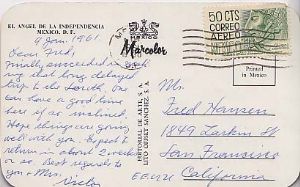 EL ANGEL DE LA INDEPENDENCIA
MEXICO, D. F.
9 Jan. 1961
Dear Fred,
Finally succeeded in
ing that long delayed
trip to the South. One
can have a good time
here if so inclined.
Hope things are going
with you. Expect to
return in about 2 weeks
or so. Best regards to
you + Mrs.
Victor
Marcolor
EDITORIAL DE ARTE, S. A.
LITO OFFSET SANCHEZ, S. A.
50 CTS
CORREO
AEREO
MEXICO
Printed
in Mexico
Mr.
Fred Hansen
1849 Larkin St
San Francisco
California
EE.UU.